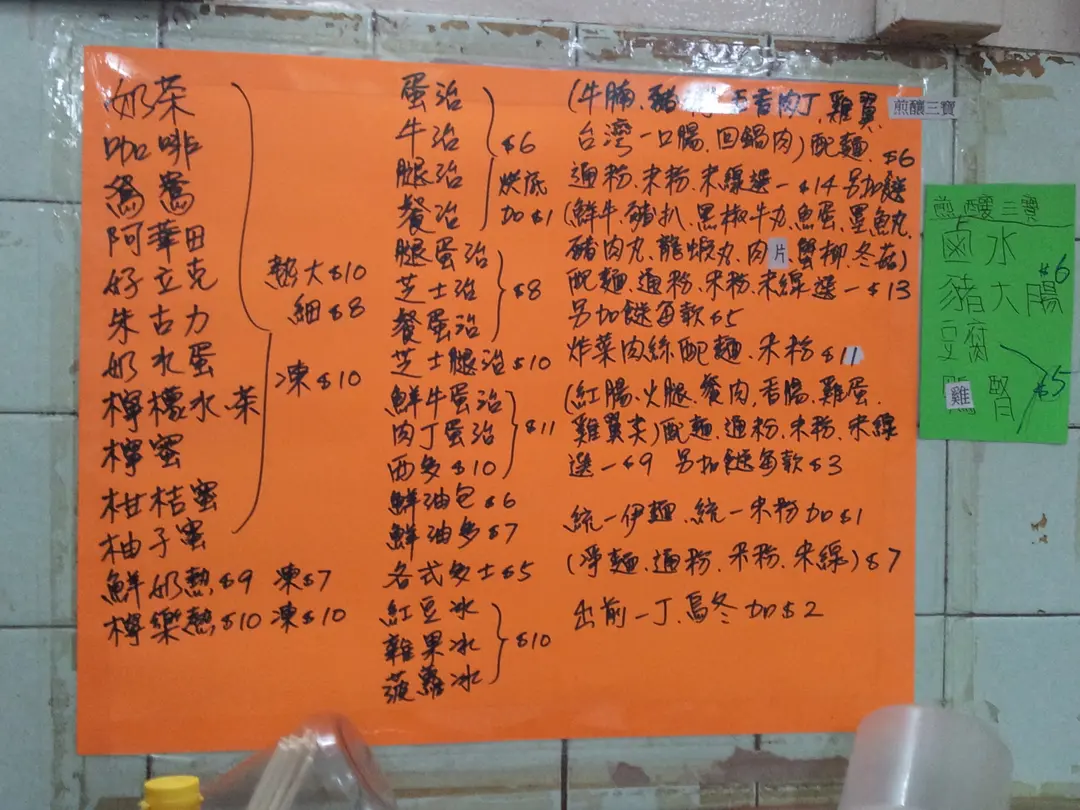 奶茶
咖啡
鴛鴦
阿華田
好立克
朱古力
奶水蛋
檸檬水.茶
檸蜜
柑桔蜜
柚子蜜
熱大$10
細$8
凍$10
鮮奶熱$9 凍$7
檸樂熱$10 凍$10
蛋治
牛治
腿治
餐治
$6
烘底
加$1
腿蛋治
芝士治
餐蛋治
$8
芝士腿治$10
鮮牛蛋治
肉丁蛋治
$11
西多$10
鮮油包$6
鮮油多$7
各式多士$5
紅豆冰
雜果冰
菠蘿冰
$10
(牛腩.豬 五香肉丁.雞翼.
台灣一口腸.回鍋肉)配麵.
通粉.米粉.米線選一$14另加餸$6
(鮮牛.豬扒.黑椒牛力.魚蛋.墨魚丸.
豬肉丸.龍蝦丸.肉片.蟹柳.冬菇)
配麵.通粉.米粉.米線選一$13
另加餸每款$5
炸菜肉絲配麵.米粉$11
(紅腸.火腿.餐肉.香腸.雞蛋.
雞翼尖)配麵.通粉.米粉.米線
選一$9 另加餸每款$3
統一伊麵.統一米粉加$1
(淨麵.通粉.米粉.米線)$7
出前一丁.烏冬加$2
煎釀三寶
煎釀三寶
鹵水
豬大腸$6
豆腐
雞腎
$5